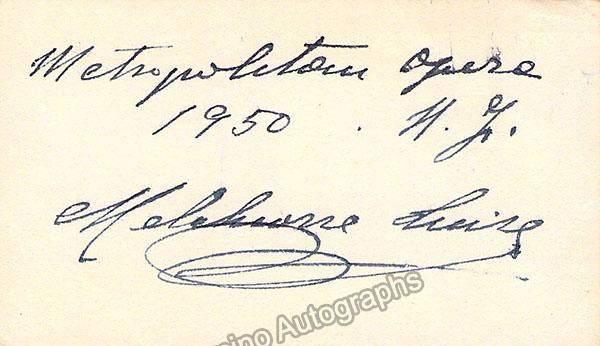 Metropolitan Opera
1950 . N. Y.
Melchiorre Luise
ino Autographs